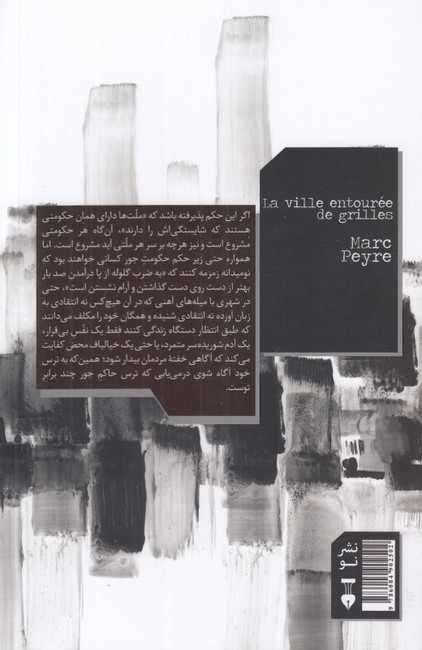 La ville entourée
de grilles
Marc
Peyre
اگر این حکم پذیرفته باشد که «ملّت‌ها دارای همان حکومتی
هستند که شایستگی‌اش را دارند»، آن‌گاه هر حکومتی
مشروع است و نیز هرچه بر سر هر ملّتی آید مشروع است. اما
همواره حتی زیر حکم حکومتِ جور کسانی خواهند بود که
نومیدانه زمزمه کنند که «به ضرب گلوله از پا درآمدن صد بار
بهتر از دست روی دست گذاشتن و آرام نشستن است»، حتی
در شهری با میله‌های آهنی که در آن هیچ‌کس نه انتقادی به
زبان آورده نه انتقادی شنیده و همگان خود را مکلف می‌دانند
که طبق انتظار دستگاه زندگی کنند فقط یک نفْس بی‌قرار،
یک آدم شوریده‌سر متمرد، یا حتی یک خیالباف محض کفایت
می‌کند که آگاهی خفتهٔ مردمان بیدار شود؛ همین‌که به ترس
خود آگاه شوی درمی‌یابی که ترس حاکم جور چند برابرِ
توست.
نشر
نو